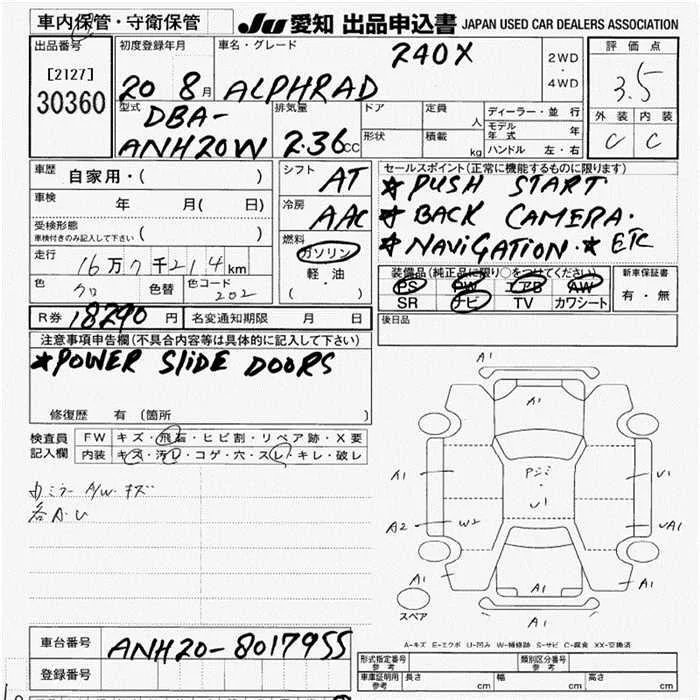 車内保管・守衛保管
JU 愛知 出品申込書 JAPAN USED CAR DEALERS ASSOCIATION
出品番号 初度登録年月 車名・グレード 240X 2WD ・ 4WD 評価点
[2127]
30360
20 8月 ALPHRAD 3.5
型式 DBA-ANH20W 排気量 2.36cc ドア 定員 人 ディーラー・並行 外装 内装
形状 積載 kg モデル年式 年 C C
ハンドル 左・右
車歴 自家用・( ) シフト AT セールスポイント(正常に機能するものに限ります)
★PUSH START
車検 年 月( 日) 冷房 AAC ★BACK CAMERA.
受検形態 車検付きのみ記入して下さい ( ) 燃料 ガソリン ★NAViGATiON.★ ETC
走行 16万7千214km 軽・油 装備品(純正品に限り○をつけてください) 新車保証書
色 クロ 色替 色コード 202 ( ・ ) PS PW エアB AW 有・無
SR ナビ TV カワシート
R券 18290円 名変通知期限 月 日 後日品
注意事項申告欄(不具合内容等は具体的に記入して下さい)
★POWER SLiDE DOORS
修復歴 有(箇所 )
検査員記入欄 FW キズ・飛石・ヒビ割・リペア跡・X要
内装 キズ・汚レ・コゲ・穴・スレ・キレ・破レ
A/W キズ
各A・U
A1
A1
A1 U1
U1
A2 W2 UA1
A1 A1 A1
A1
スペア
A-キズ E-エクボ U-凹み W-補修跡 S-サビ C-腐食 XX-交換済
車台番号 ANH20-8017955
登録番号
形式指定番号 参考 類別区分番号 参考
車庫証明用 参考 長さ cm 幅 cm 高さ cm